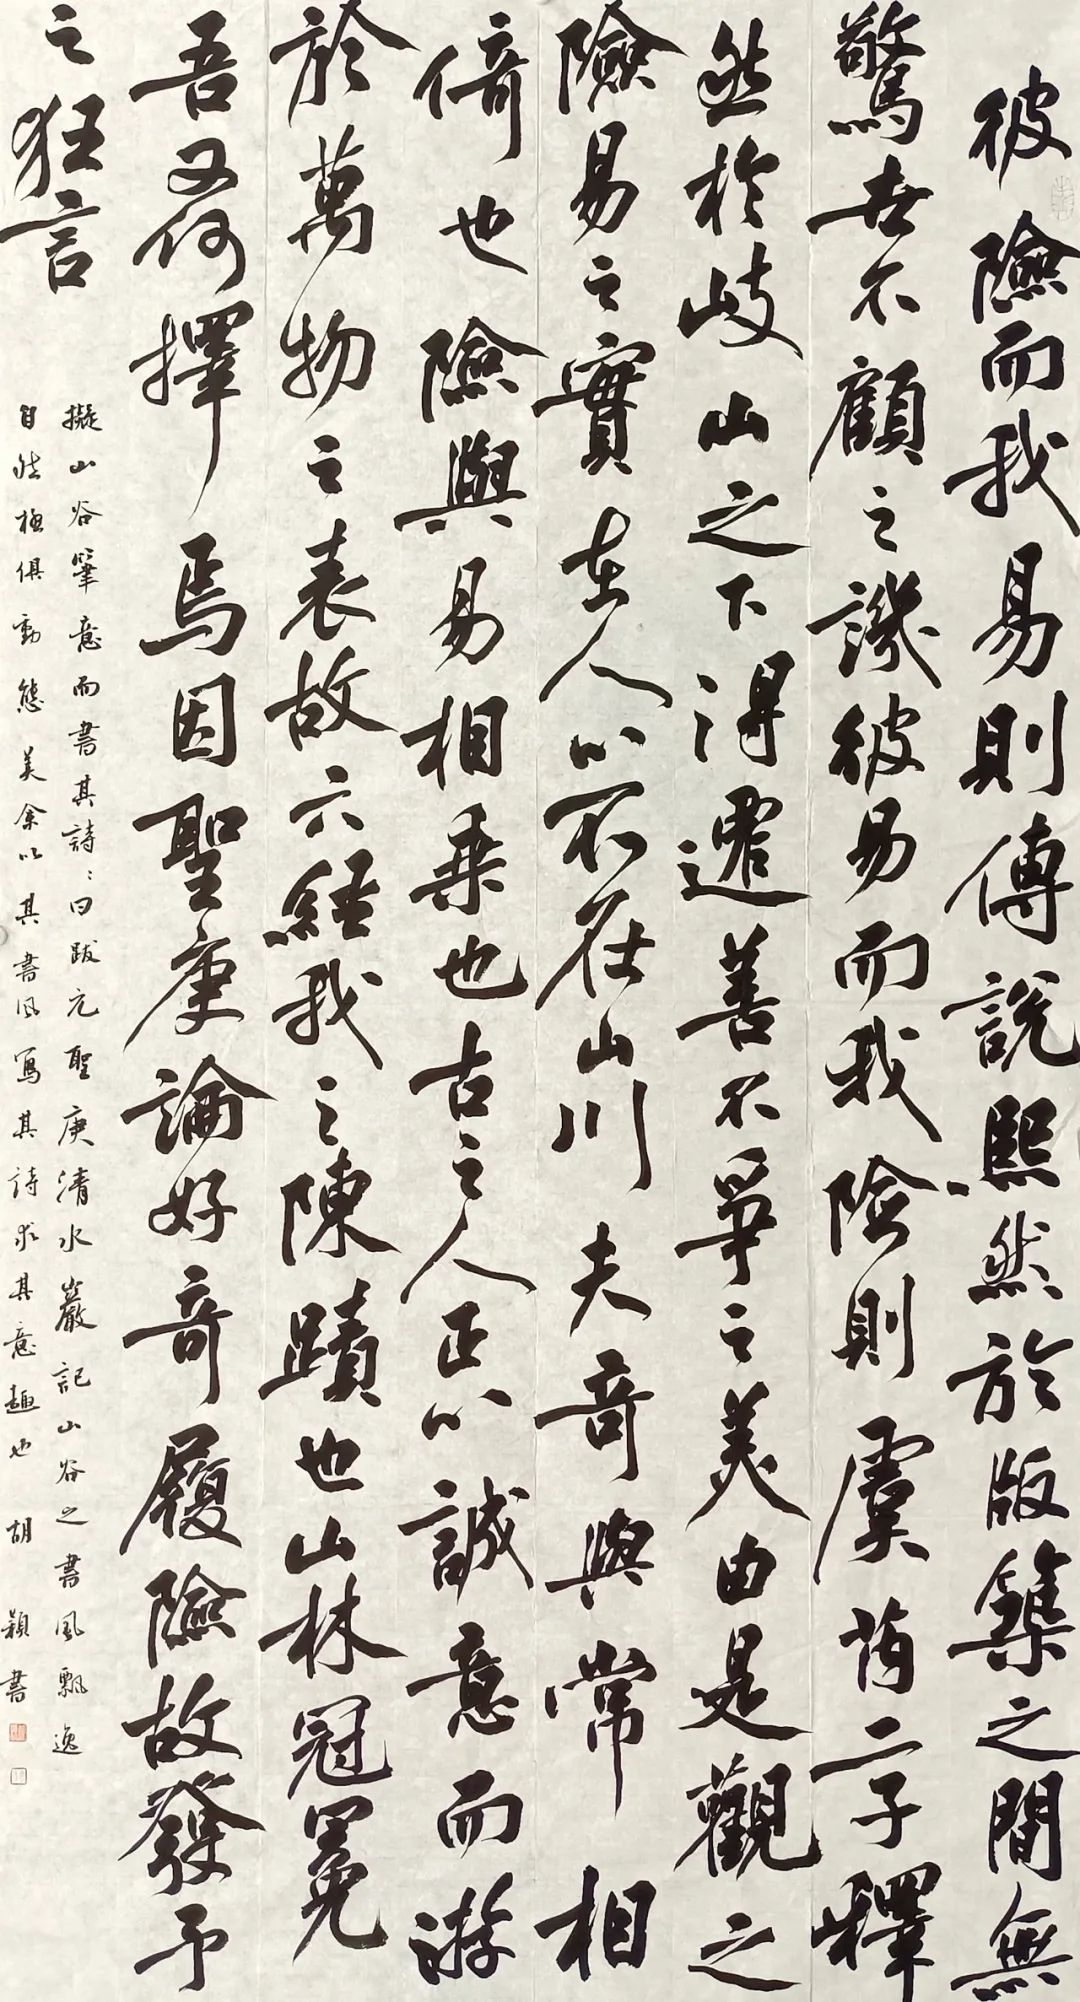 彼險而我易則傅說熙然於版築之間無
驚世不顧之譏彼易而我險則虞芮二子釋
然於岐山之下得遷善不爭之美由是觀之
險易之實在人心不在山川夫奇與常相
倚也險與易相乘也古之人正心誠意而游
於萬物之表故六經我之陳蹟也山林冠冕
吾又何擇焉因聖庚論好奇履險故發予
之狂言
擬山谷筆意而書其詩詩曰跋元聖庚清水巖記山谷之書風飄逸
自然極俱動態美余以其書風寫其詩求其意趣也 胡穎書